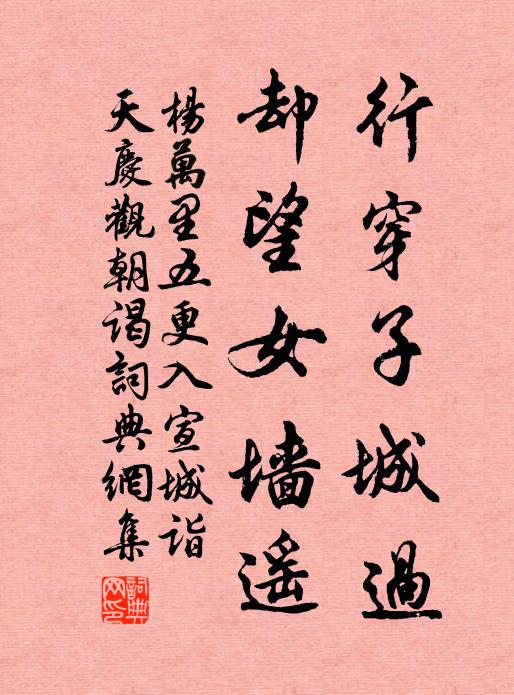 行穿子城過
却望女墻遥
楊萬里五更入宣城詣
天慶觀朝謁詞典網集
詞典网印